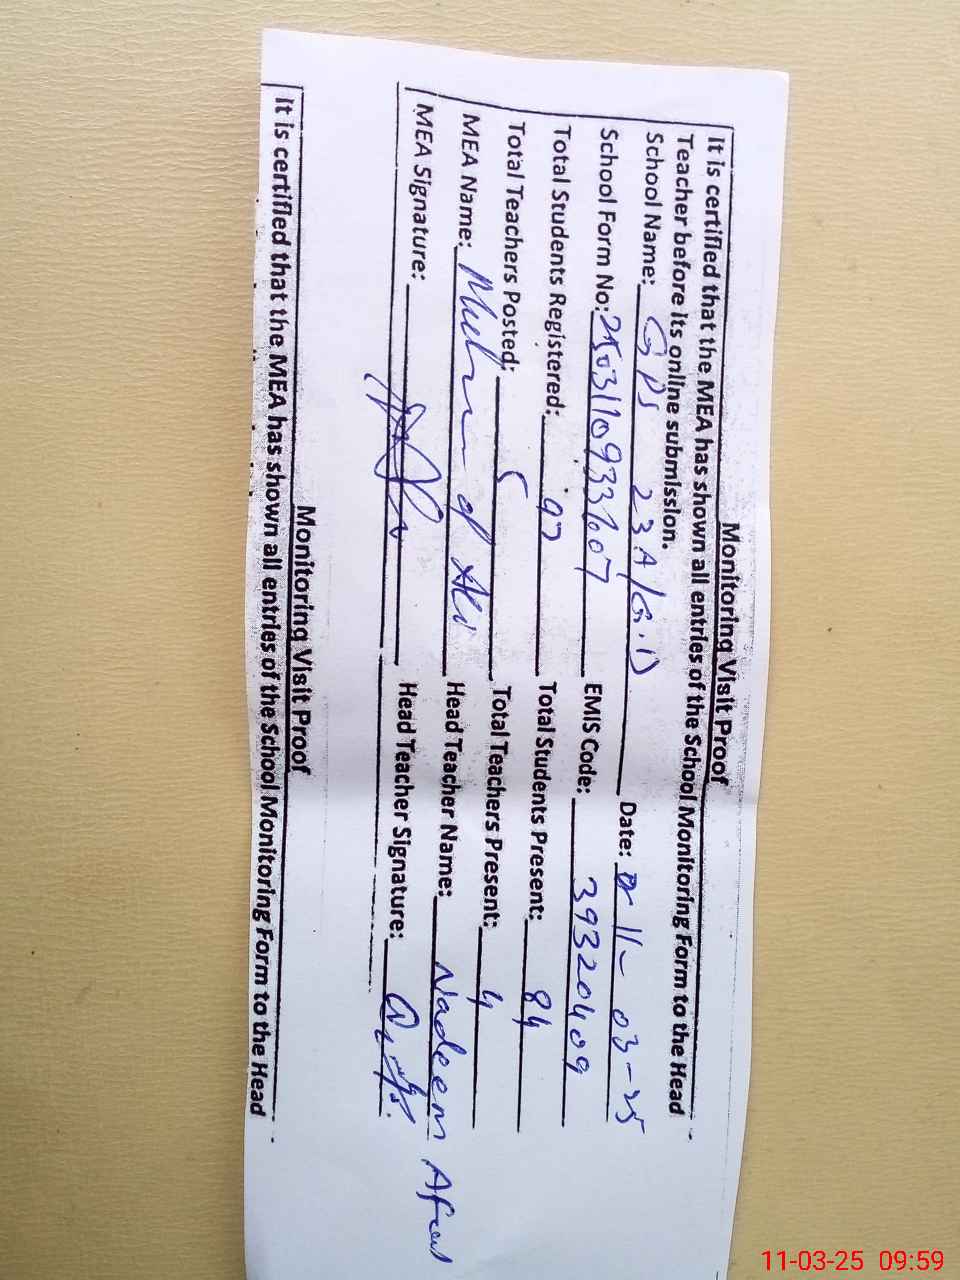 Monitoring Visit Proof
It is certified that the MEA has shown all entries of the School Monitoring Form to the Head
Teacher before its online submission.
School Name: GPS 23A/G.D Date: 11-03-25
School Form No: EMIS Code: 39320409
Total Students Registered: 97 Total Students Present: 84
Total Teachers Posted: 5 Total Teachers Present: 4
MEA Name: Ali Head Teacher Name: Nadeem
MEA Signature: Head Teacher Signature:
Monitoring Visit Proof
It is certified that the MEA has shown all entries of the School Monitoring Form to the Head
11-03-25 09:59